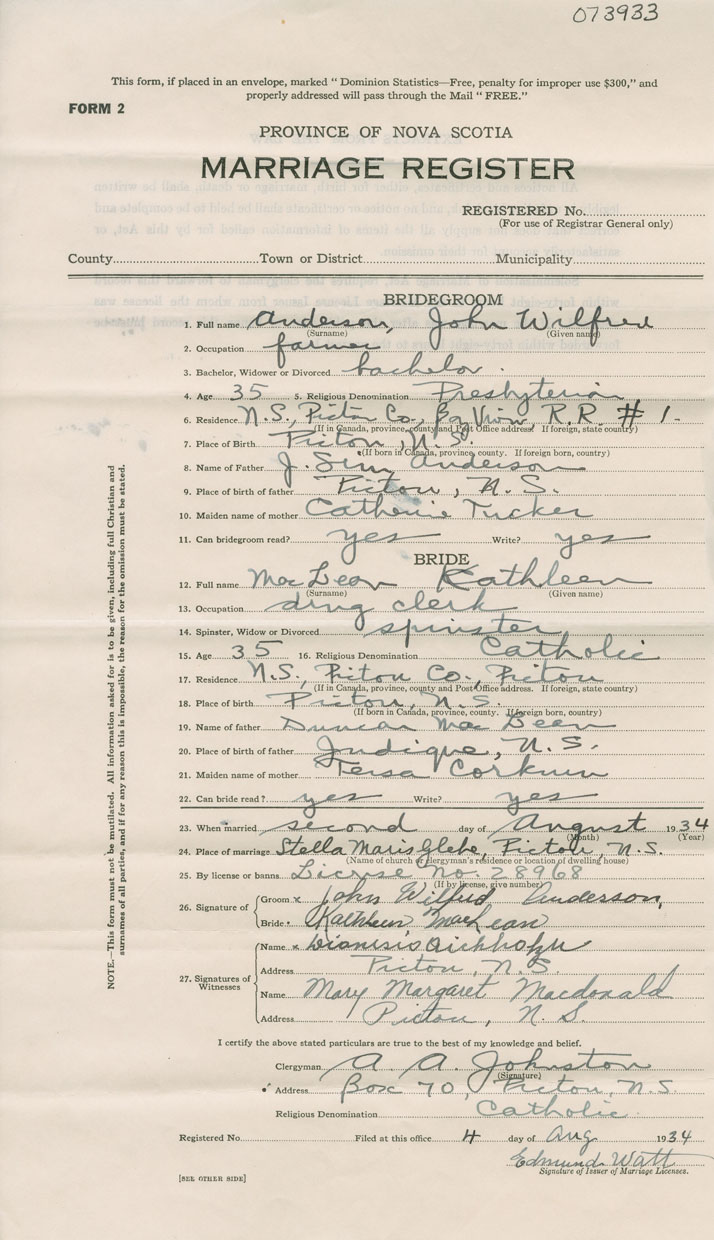 073933
This form, if placed in an envelope, marked " Dominion Statistics—Free, penalty for improper use $300," and
properly addressed will pass through the Mail " FREE."
FORM 2
PROVINCE OF NOVA SCOTIA
MARRIAGE REGISTER
REGISTERED No.
(For use of Registrar General only)
County Town or District Municipality
BRIDEGROOM
1. Full name Anderson, John Wilfred
(Surname) (Given name)
2. Occupation farmer
3. Bachelor, Widower or Divorced bachelor.
4. Age 35 5. Religious Denomination Presbyterian
6. Residence N.S., Pictou Co., Bay View, R.R. # 1.
(If in Canada, province, county and Post Office address. If foreign, state country)
7. Place of Birth Pictou, N.S.
(If born in Canada, province, county. If foreign born, country)
8. Name of Father J. Sim Anderson
9. Place of birth of father Pictou, N.S.
10. Maiden name of mother Catherine Tucker
11. Can bridegroom read? yes Write? yes
BRIDE
12. Full name MacLean Kathleen
(Surname) (Given name)
13. Occupation drug clerk
14. Spinster, Widow or Divorced spinster
15. Age 35 16. Religious Denomination Catholic
17. Residence N.S., Pictou Co., Pictou
(If in Canada, province, county and Post Office address. If foreign, state country)
18. Place of birth Pictou, N.S.
(If born in Canada, province, county. If foreign born, country)
19. Name of father Duncan MacLean
20. Place of birth of father Judique, N.S.
21. Maiden name of mother Corkum
22. Can bride read? yes Write? yes
23. When married second day of August 1934
(Month) (Year)
24. Place of marriage Stella Maris Glebe, Pictou, N.S.
(Name of church or clergyman's residence or location of dwelling house)
25. By license or banns License no. 28968
(If by license, give number)
26. Signature of Groom x John Wilfred Anderson,
Bride Kathleen MacLean
27. Signatures of Witnesses
Name x Dionisis
Address Pictou, N.S.
Name Mary Margaret Macdonald
Address Pictou, N S.
I certify the above stated particulars are true to the best of my knowledge and belief.
Clergyman A. A. Johnston
(Signature)
Address Box 70, Pictou, N.S.
Religious Denomination Catholic.
Registered No. Filed at this office 4 day of Aug 1934
Edmund Watt
Signature of Issuer of Marriage Licenses.
[SEE OTHER SIDE]
NOTE.—This form must not be mutilated. All information asked for is to be given, including full Christian and
surnames of all parties, and if for any reason this is impossible, the reason for the omission must be stated.